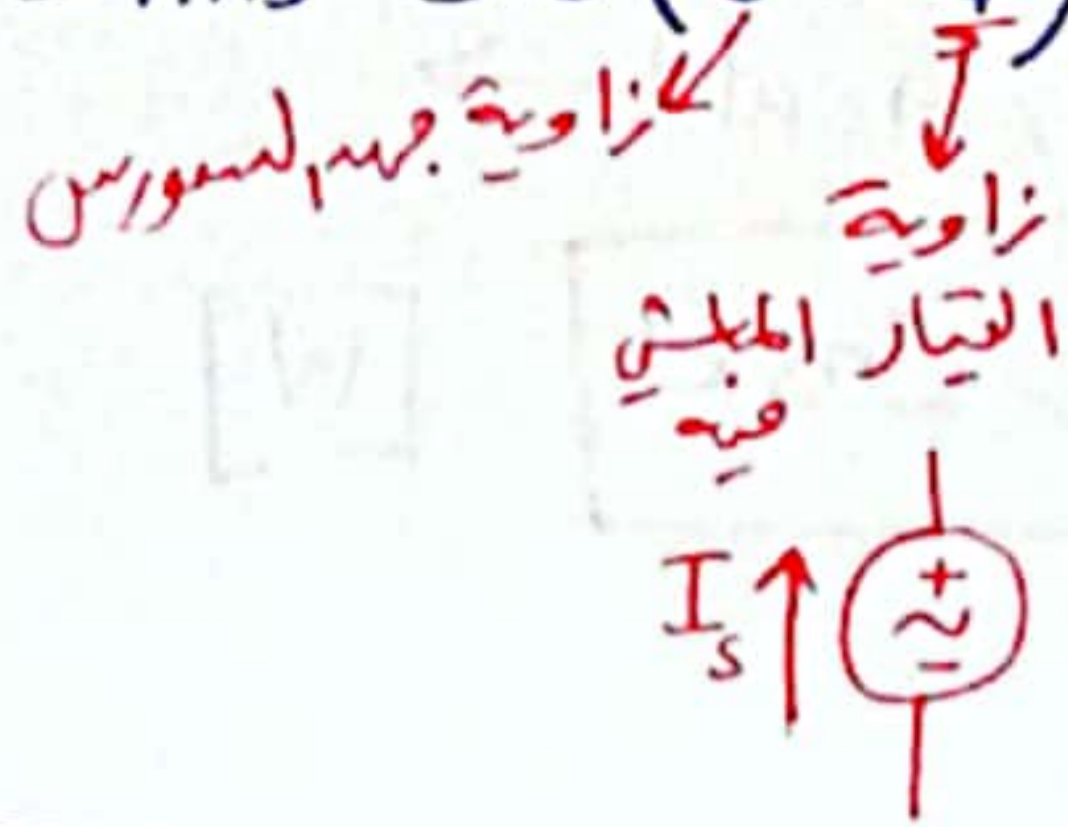 زاوية جهد السورس
زاوية
التيار المبلش
فيه
I_s
+
~
-